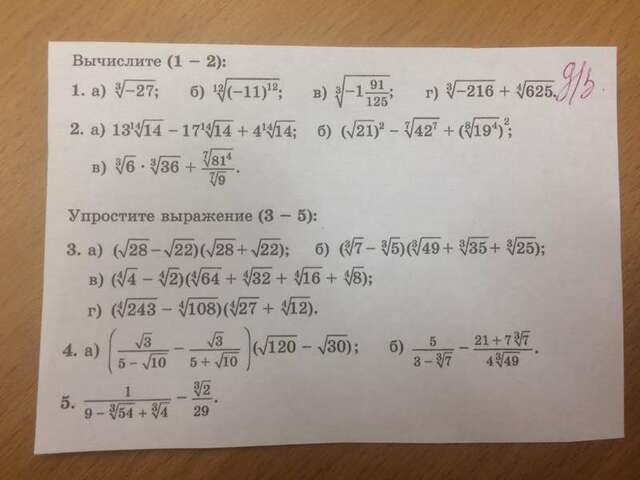 Вычислите (1 – 2):
1. а) ∛−27; б) ¹²√(−11)¹²; в) ∛−1 91/125; г) ∛−216 + ⁴√625. д/з.
2. а) 13¹⁴√14 − 17¹⁴√14 + 4¹⁴√14; б) (√21)² − ⁷√42⁷ + (⁸√19⁴)²;
в) ∛6 · ∛36 + ⁷√81⁴/⁷√9.
Упростите выражение (3 – 5):
3. а) (√28 − √22)(√28 + √22); б) (∛7 − ∛5)(∛49 + ∛35 + ∛25);
в) (⁴√4 − ⁴√2)(⁴√64 + ⁴√32 + ⁴√16 + ⁴√8);
г) (⁴√243 − ⁴√108)(⁴√27 + ⁴√12).
4. а) (√3/(5 − √10) − √3/(5 + √10))(√120 − √30); б) 5/(3 − ∛7) − (21 + 7∛7)/(4∛49).
5. 1/(9 − ∛54 + ∛4) − ∛2/29.